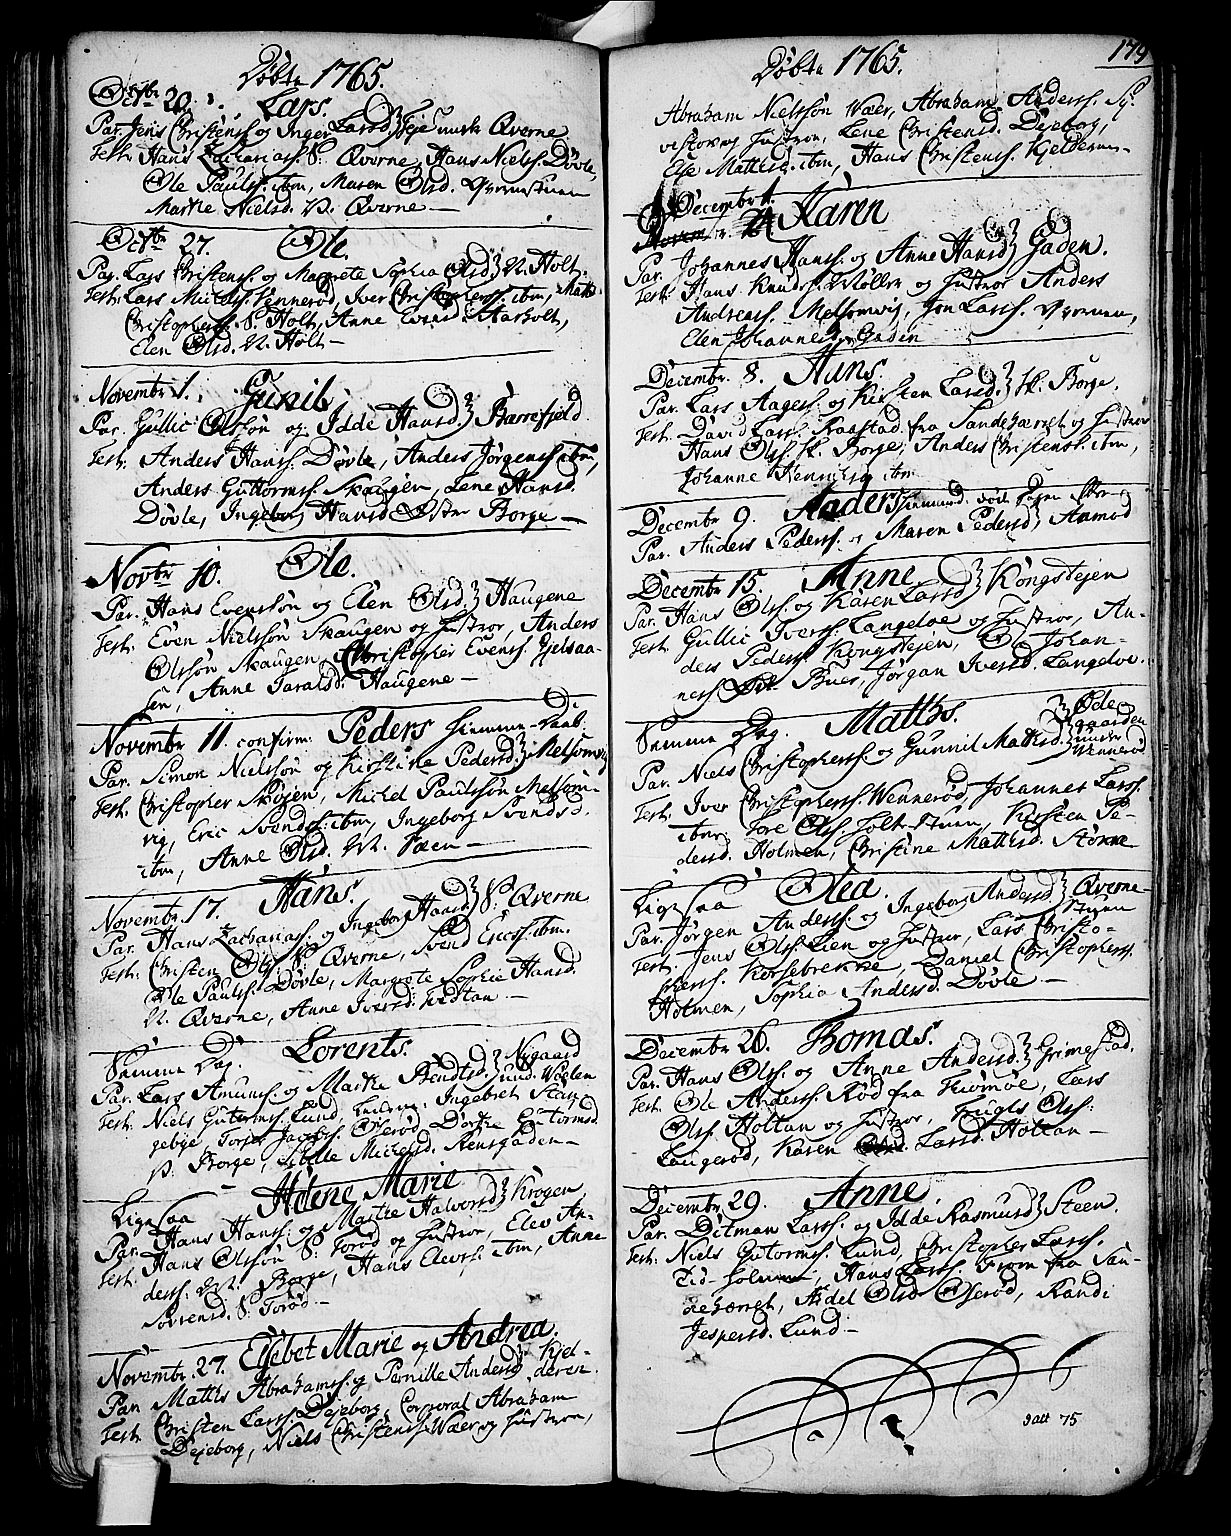 Døbte 1765.
Octbr 20. Lars.
Par. Jens Christens. og Inger Larsd. Eje under Qverne
Test. Hans Zacharias. S. Qverne, Hans Niels. Døvle,
Ole Pauls. ibm, Maren Olsd. Qvernstuen
Marthe Nielsd. N. Qverne
Octbr 27. Ole.
Par. Lars Christens. og Margrete Sophia Olsd. N. Holt.
Test. Lars Michels. Vennerød, Iver Christophers. ibm, Matts
Christophers. S. Holt, Anne Evensd. Aarholt,
Elen Olsd. N. Holt
Novembr 1. Gunil.
Par. Gullic Olssøn og Idde Hansd. Barrefjeld
Test. Anders Hanss. Døvle, Anders Jørgenss. ibm,
Anders Guttormss. Skaugen, Lene Hansd.
Døvle, Ingeborg Hansd. Østre Borge
Novbr 10. Ole.
Par. Hans Evenssøn og Elen Olsd. Haugene
Test. Even Nielssøn Skaugen og Hustroe, Anders
Olssøn Skaugen, Christopher Evenss. Gjelsaa-
sen, Anne Taralsd. Haugene
Novembr 11. confirm. Peders hiemme-Daab.
Par. Simon Nielssøn og Kirstine Pedersd. Melsomvig
Test. Christopher Skøjen, Michel Paulssøn Melsom-
vig, Eric Svends. ibm, Ingeborg Svendsd.
ibm, Anne Olsd. N. Fæen
Novembr. 17. Hans.
Par. Hans Zacharias. og Ingeborg Hansd. S. Qverne
Test. Christen Ols. S. Qverne, Svend Erics. ibm.
Ole Pauls. Døvle, Margrete Sophie Hansd.
N. Qverne, Anne Iversd. Hedtan
Samme Dag. Lorents.
Par. Lars Amunds. og Marthe Bendtsd. Nygaard und. Wølen
Test. Niels Gutorms. Lund, Ingebret Skag-
gebye, Torjer Jacobs. Oserød, Dorthe Gutormsd.
N. Borge, Sibille Michelsd. Rensgaden
Ligesaa Helene Marie
Par. Hans Hans. og Marthe Halvorsd. Krogen
Test. Hans Olssøn S. Torød og Hustroe, Elev An-
derss. N. Borge, Hans Elevs. ibm, Anne
Sørensd. S. Torød.
Novembr. 27. Elsebet Marie og Andrea.
Par. Matths Abrahams. og Pernille Andersd. Kjel-
deren.
Test. Christen Lars. Dejeborg, Corporal Abraham
Dejeborg, Niels Christens. Waer og Hustroe,
179
Døbte 1765.
Abraham Nielssøn Waer, Abraham Anderss.
og Hustroe, Lene Christensd. Dejeborg,
Else Mattisd. ibm, Hans Christenss. Kjelderen
Decembr 1. Karen
Par. Johannes Hanss. og Anne Hansd. Gaden.
Test. Hans Knuds. Møller og Hustroe Anders
Andreass. Melsomvig, Jon Larss. Qvernen,
Elen Johannesd. Gaden
Decembr. 8. Hans.
Par. Lars Aagess. og Kirsten Larsd. St. Borge.
Test. David Lars. Raastad fra Sandeherret og Hustroe
Hans Ols. St. Borge, Anders Christens. ibm,
Johanne Henrichsd. ibm
Decembr 9. Anders
Par. Anders Pederss. og Maren Pedersd. Aamod
Decembr 15. Anne.
Par. Hans Ols. og Karen Larsd. Kongstejen
Test. Gullic Ivers. Langeloe og Hustroe, An-
ders Peders. Kongstejen, Johan-
nes Buer, Jørgen Iversd. Langeloe.
Samme Dag. Matths. Øde-
gaarden
under
Wennerød
Par. Niels Christophers. og Gunnil Mathisd.
Test. Iver Christophers. Wennerød, Johannes Larss.
ibm, Tore Ols. Holt-stuen, Kirsten Pe-
dersd. Holmen, Christine Mattisd. Stønne
Ligesaa Olea.
Par. Jørgen Anderss. og Ingeborg Andersd. Qverne-
stuen
Test. Jens Ols. Lien og Hustroe, Lars Christo-
phers. Korsebrekke, Daniel Christophers.
Holmen, Sophia Andersd. Døvle
Decembr 26. Tomas.
Par. Hans Ols. og Anne Andersd. Grimestad.
Test. Ole Anderss. Rød fra Tiømøe, Lars
Ols. Holtan og Hustroe, Fugls Ols.
Laugerød, Karen Larsd. Holtan
Decembr 29. Anne.
Par. Ditman Larss. og Idde Rasmusd. Steen.
Test. Niels Gutorms. Lund, Christopher Larss.
Tid-holmen, Hans Larss. From fra San-
deherret, Aidel Olsd. Oserød, Randi
Jespersd. Lund
Datt 75